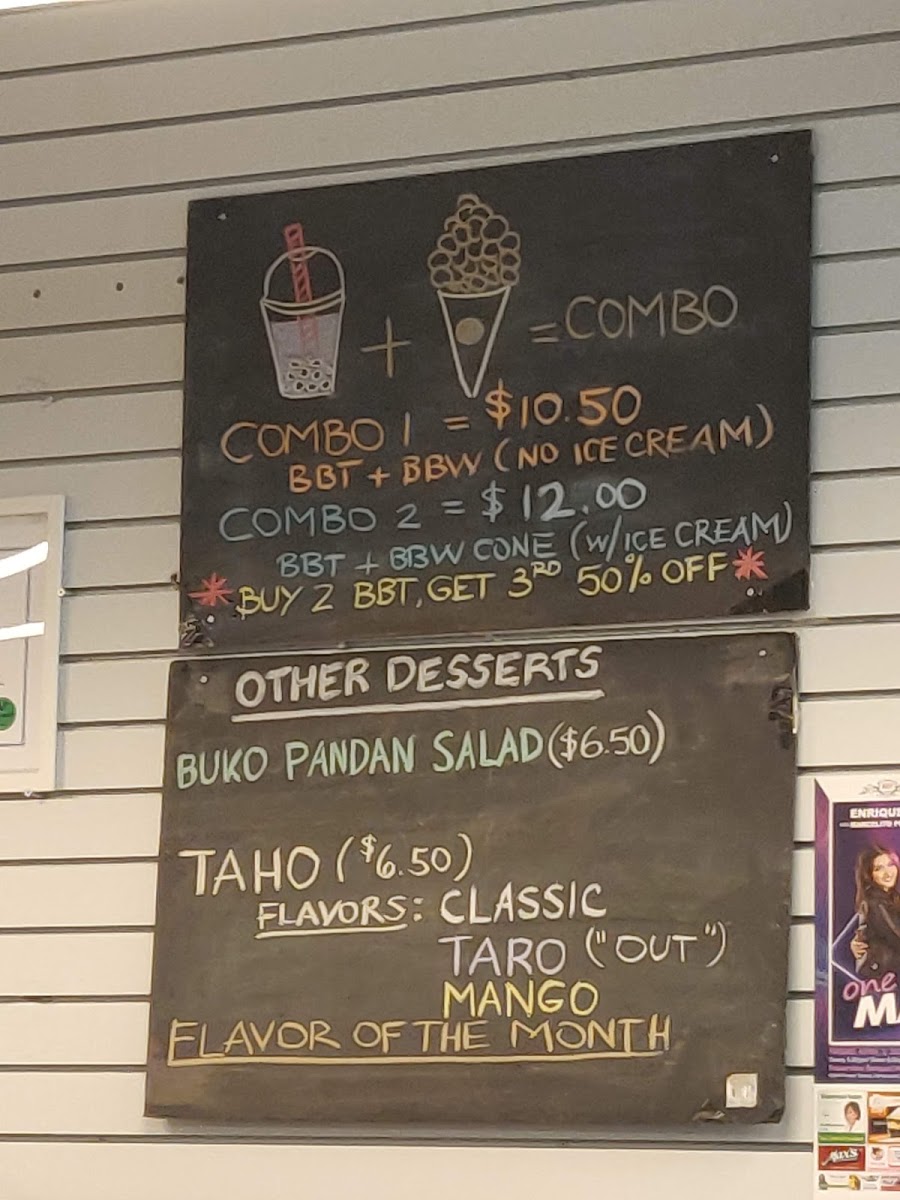 = COMBO
COMBO 1 = $10.50
BBT + BBW (NO ICE CREAM)
COMBO 2 = $12.00
BBT + BBW CONE (W/ICE CREAM)
* BUY 2 BBT, GET 3RD 50% OFF *
OTHER DESSERTS
BUKO PANDAN SALAD ($6.50)
TAHO ($6.50)
FLAVORS: CLASSIC
TARO ("OUT")
MANGO
FLAVOR OF THE MONTH
ENRIQU
one
MAX'S